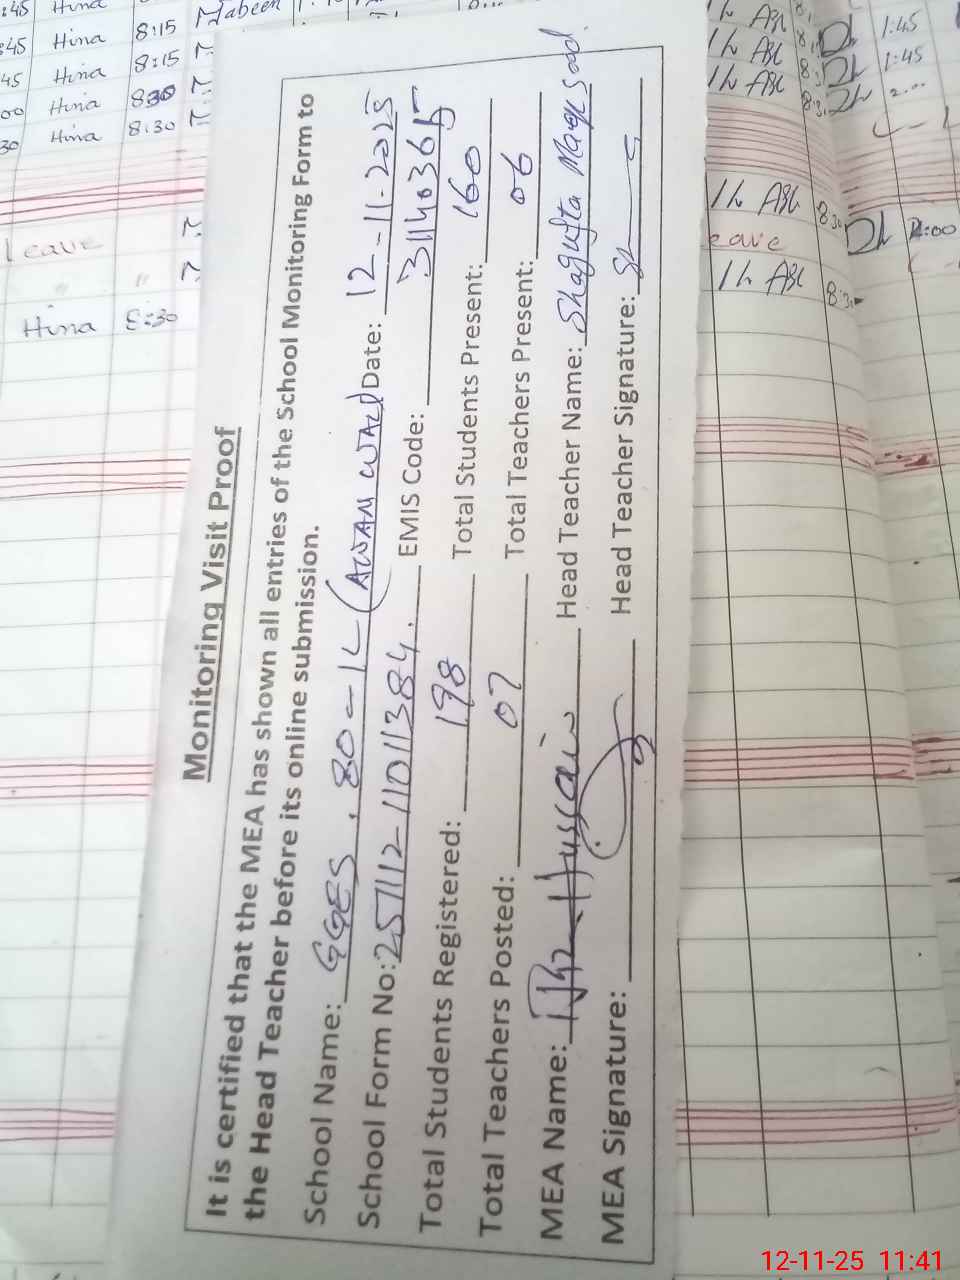 Monitoring Visit Proof
It is certified that the MEA has shown all entries of the School Monitoring Form to
the Head Teacher before its online submission.
School Name: GGES, 80-1L (AWAN WALI) Date: 12-11-2025
School Form No: 257112-11011384. EMIS Code:
Total Students Registered: 198 Total Students Present: 160
Total Teachers Posted: 07 Total Teachers Present: 06
MEA Name: Hussain Head Teacher Name: Shagufta Maqsood
MEA Signature: Head Teacher Signature:
:45 Hina 8:15 Nabeen
:45 Hina 8:15
45 Hina 8:15
00 Hina 830
30 Hina 8:30
leave
" "
Hina 8:30
1:45
1:45
2:00
8:30 2:00
eave
8:30
12-11-25 11:41